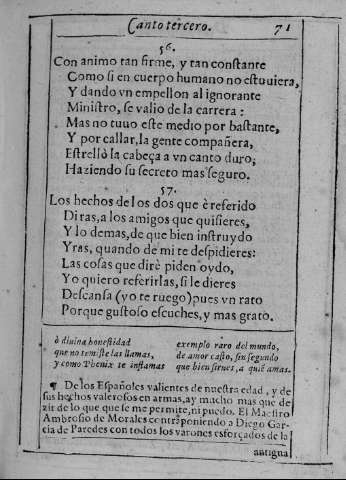 Canto tercero. 71
56.
Con animo tan firme, y tan constante
Como si en cuerpo humano no estuuiera,
Y dando vn empellon al ignorante
Ministro, se valio de la carrera:
Mas no tuuo este medio por bastante,
Y por callar, la gente compañera,
Estrellò la cabeça a vn canto duro,
Haziendo su secreto mas seguro.
57.
Los hechos de los dos que è referido
Diras, a los amigos que quisieres,
Y lo demas, de que bien instruydo
Yras, quando de mi te despidieres:
Las cosas que dirè piden oydo,
Yo quiero referirlas, si le dieres
Descansa (yo te ruego) pues vn rato
Porque gustoso escuches, y mas grato.
ò diuina honestidad exemplo raro del mundo,
que no temiste las llamas, de amor casto, sin segundo
y como Phenix te inflamas que bien sirues, a quiē amas.
¶ De los Españoles valientes de nuestra edad, y de
sus hechos valerosos en armas, ay mucho mas que de
zir de lo que se me permite, ni puedo. El Maestro
Ambrosio de Morales contraponiendo a Diego Gar-
cia de Paredes con todos los varones esforçados de la
antigua